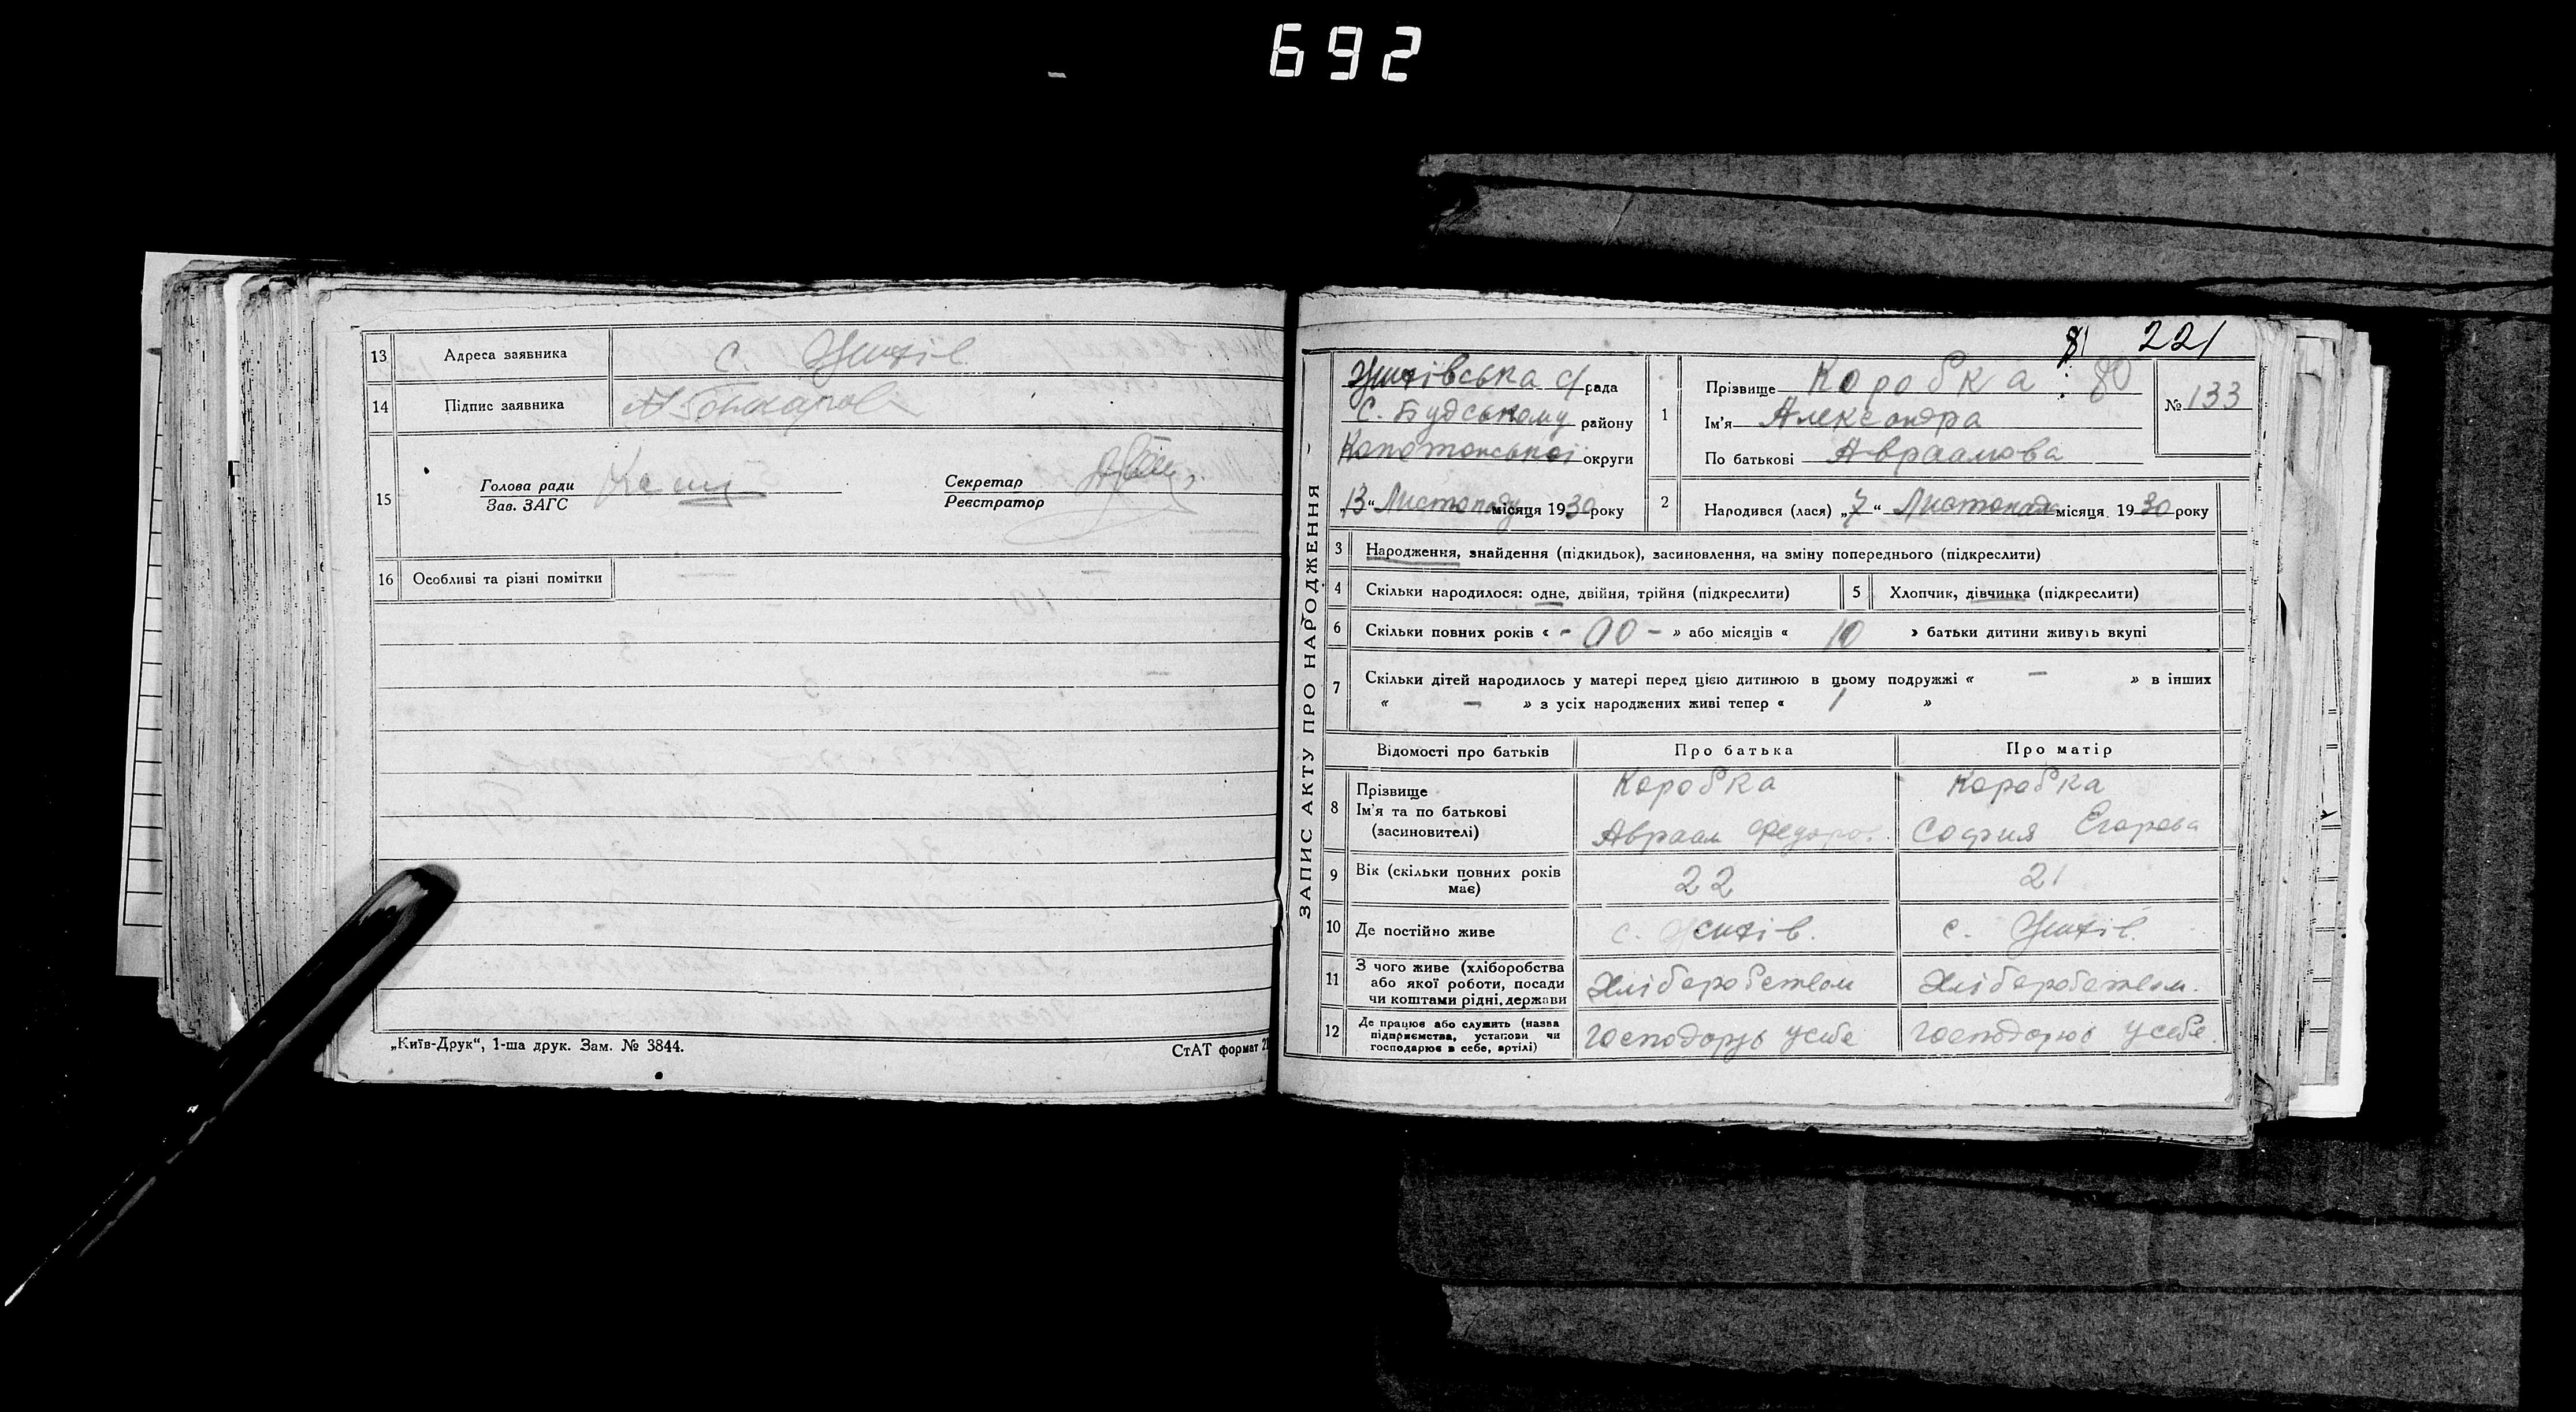 692
13 Адреса заявника с. Жихів
14 Підпис заявника
15 Голова ради
Зав. ЗАГС
Секретар
Реєстратор
16 Особливі та різні помітки
„Київ-Друк“, 1-ша друк. Зам. № 3844.
СтАТ формат
81 221
ЗАПИС АКТУ ПРО НАРОДЖЕННЯ
Жихівська с/рада
С. Будському району
округи
„13“ Листопаду місяця 1930 року
1 Прізвище Коробка 80
Ім’я Александра
По батькові Авраамова
№ 133
2 Народився (лася) „7“ Листопада місяця 1930 року
3 Народження, знайдення (підкидьок), засиновлення, на зміну попереднього (підкреслити)
4 Скільки народилося: одне, двійня, трійня (підкреслити)
5 Хлопчик, дівчинка (підкреслити)
6 Скільки повних років « - 00 - » або місяців « 10 » батьки дитини живуть вкупі
7 Скільки дітей народилось у матері перед цією дитиною в цьому подружжі « — » в інших
« — » з усіх народжених живі тепер « 1 »
Відомості про батьків Про батька Про матір
8 Прізвище Коробка Коробка
Ім’я та по батькові
(засиновителі) Авраам Федоров. София Егорова
9 Вік (скільки повних років
має) 22 21
10 Де постійно живе с. Жихів. с. Жихів.
11 З чого живе (хліборобства
або якої роботи, посади
чи коштами рідні, держави Хліборобством Хліборобством.
12 Де працює або служить (назва
підприємства, установи чи
господарює в себе, артілі) господарує у себе господарює у себе.